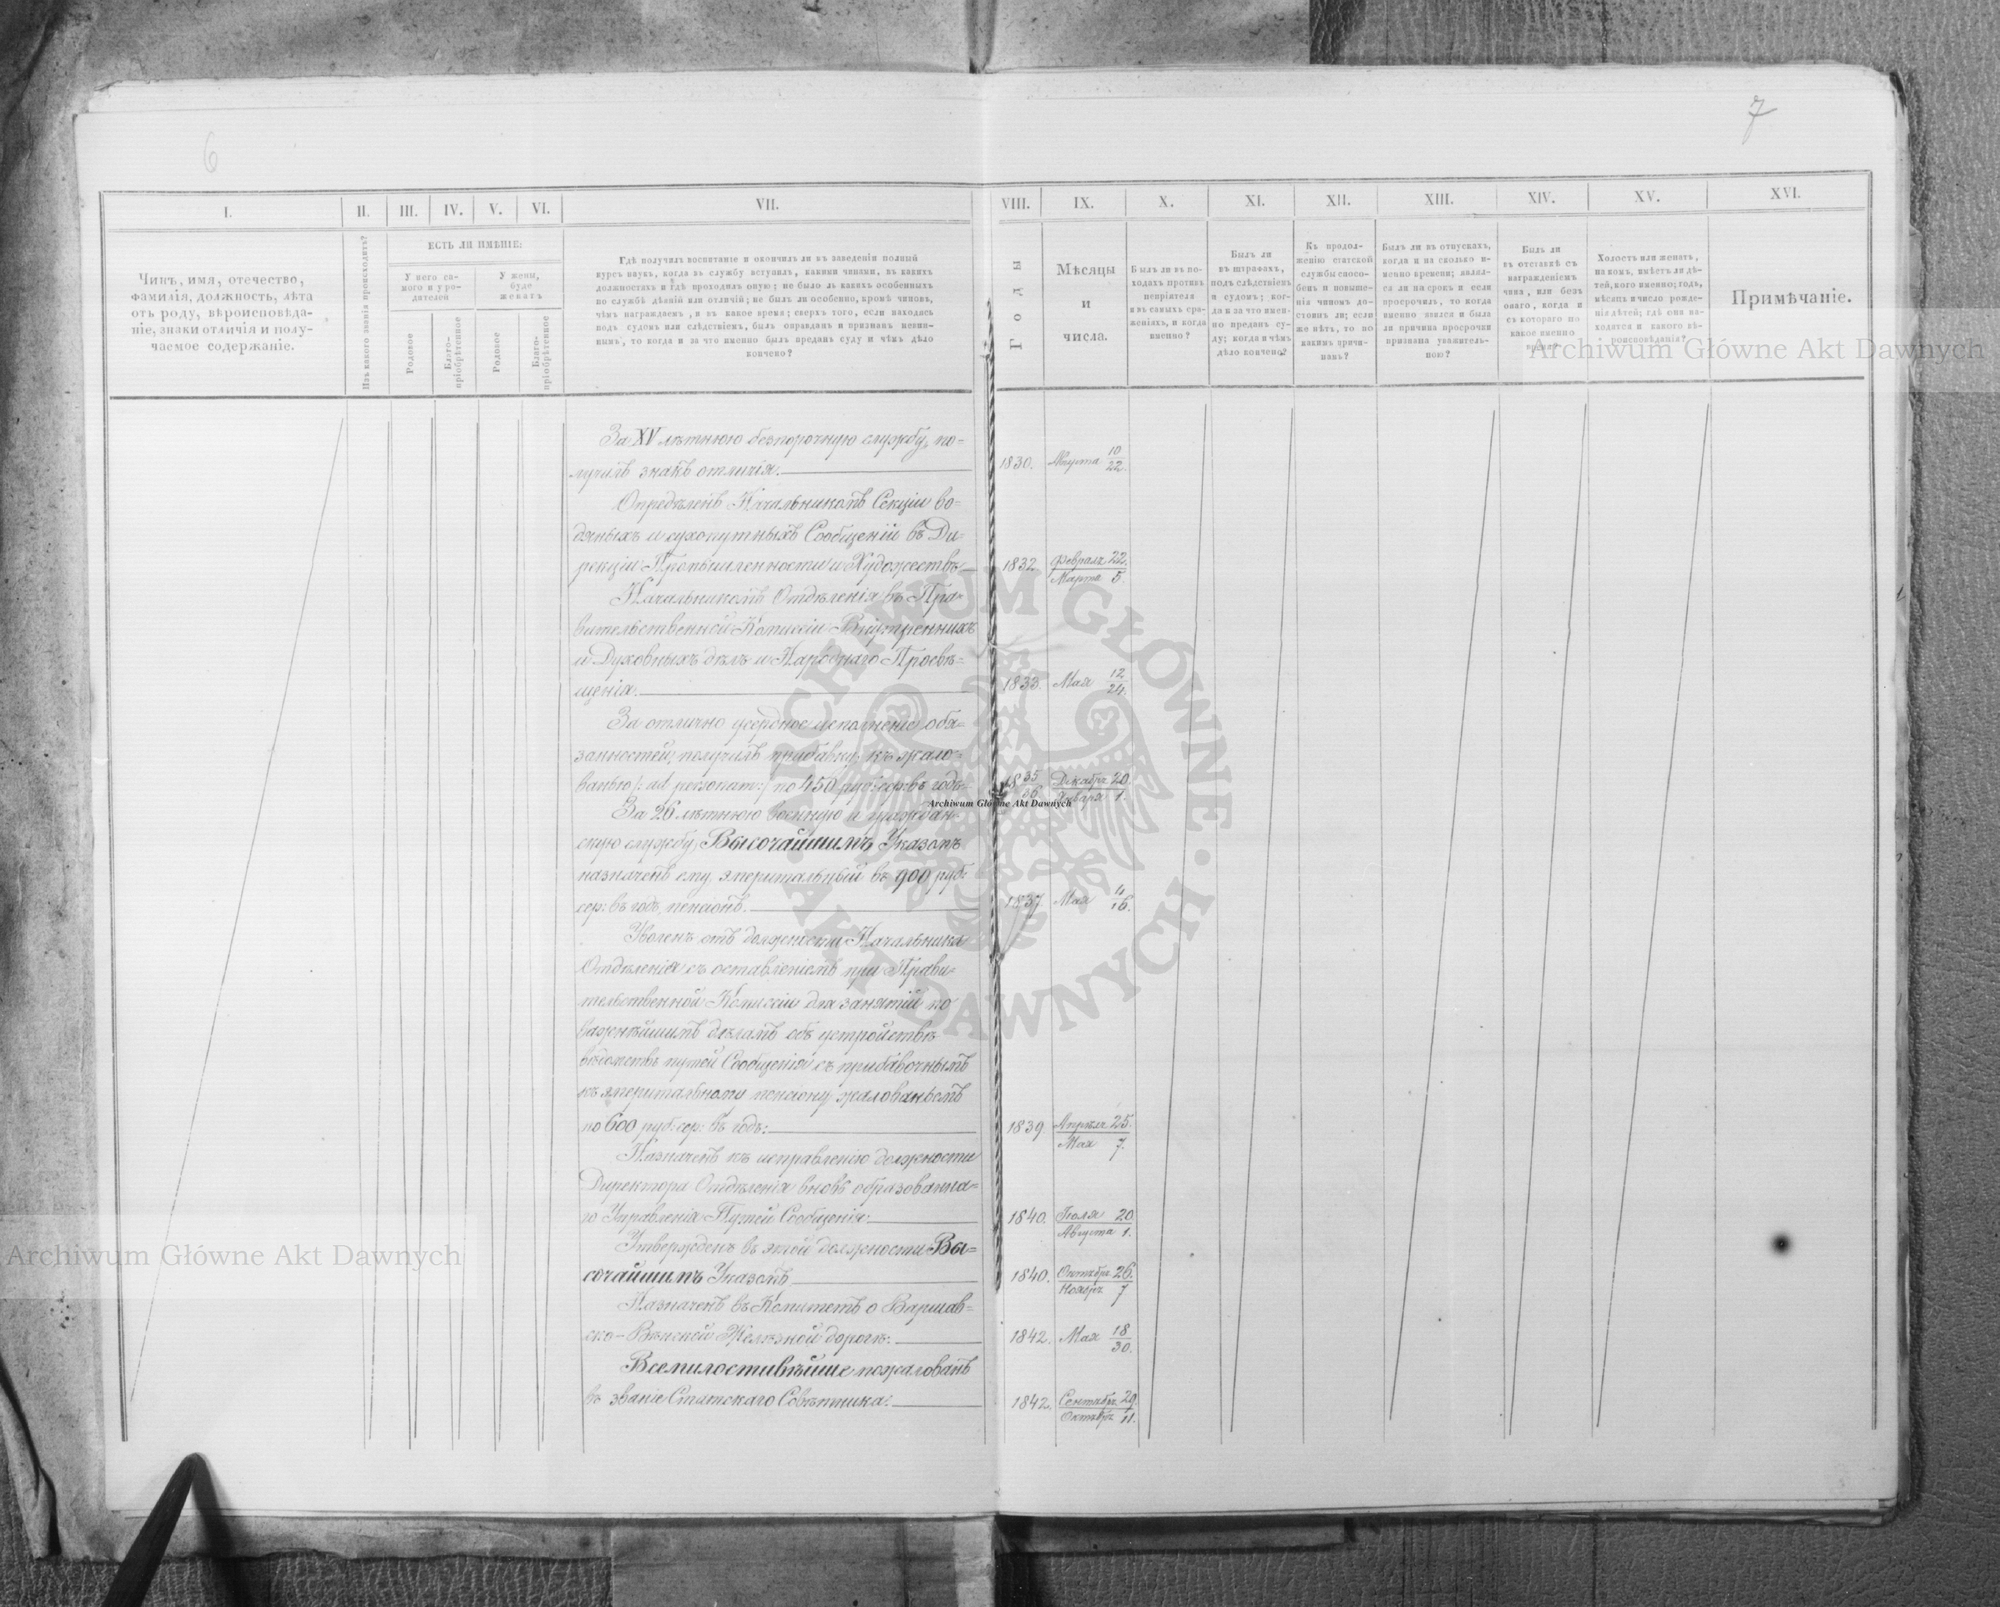 6
7
I.
II.
III.
IV.
V.
VI.
VII.
VIII.
IX.
X.
XI.
XII.
XIII.
XIV.
XV.
XVI.
Чинъ, имя, отечество,
фамилія, должность, лѣта
отъ роду, вѣроисповѣда-
ніе, знаки отличія и полу-
чаемое содержаніе.
Изъ какого званія происходитъ?
ЕСТЬ ЛИ ИМѢНІЕ:
У него са-
мого и у ро-
дителей
У жены,
буде
женатъ
Родовое
Благо-
пріобрѣтенное
Родовое
Благо-
пріобрѣтенное
Гдѣ получилъ воспитаніе и окончилъ ли въ заведеніи полный
курсъ наукъ, когда въ службу вступилъ, какими чинами, въ какихъ
должностяхъ и гдѣ проходилъ оную; не было ль какихъ особенныхъ
по службѣ дѣяній или отличій; не былъ ли особенно, кромѣ чиновъ,
чѣмъ награждаемъ, и въ какое время; сверхъ того, если находясь
подъ судомъ или слѣдствіемъ, былъ оправданъ и признанъ невин-
нымъ, то когда и за что именно былъ преданъ суду и чѣмъ дѣло
кончено?
Годы
Мѣсяцы
и
числа.
Былъ ли въ по-
ходахъ противъ
непріятеля
и въ самыхъ сра-
женіяхъ, и когда
именно?
Былъ ли
въ штрафахъ,
подъ слѣдствіемъ
и судомъ; ког-
да и за что имен-
но преданъ су-
ду; когда и чѣмъ
дѣло кончено?
Къ продол-
женію статской
службы спосо-
бенъ и повыше-
нія чиномъ до-
стоинъ ли; если
же нѣтъ, то по
какимъ причи-
намъ?
Былъ ли въ отпускахъ,
когда и на сколько и-
менно времени; являл-
ся ли на срокъ и если
просрочилъ, то когда
именно явился и была
ли причина просрочки
признана уважитель-
ною?
Былъ ли
въ отставкѣ съ
награжденіемъ
чина, или безъ
онаго, когда и
съ котораго по
какое именно
время?
Холостъ или женатъ,
на комъ, имѣетъ ли дѣ-
тей, кого именно; годъ,
мѣсяцъ и число рожде-
нія дѣтей; гдѣ они на-
ходятся и какого вѣ-
роисповѣданія?
Примѣчаніе.
За XV лѣтнюю безпорочную службу, по-
лучилъ знакъ отличія. 1830. Августа 10/22.
Опредѣленъ Начальникомъ Секціи во-
дяныхъ и сухопутныхъ Сообщеній въ Ди-
рекціи Промышленности и Художествъ 1832 Февраля 22./Марта 5.
Начальникомъ Отдѣленія въ Пра-
вительственной Комиссіи Внутреннихъ
и Духовныхъ дѣлъ и Народнаго Просвѣ-
щенія. 1833. Мая 12/24.
За отлично усердное исполненіе обя-
занностей, получилъ прибавку къ жало-
ванью /: ad personam:/ по 450 руб: сер: въ годъ 1835/36 Декабря 20./Января 1.
За 26 лѣтнюю военную и граждан-
скую службу, Высочайшимъ Указомъ
назначенъ ему эмеритальный въ 900 руб:
сер: въ годъ, пенсіонъ. 1837. Мая 4/16.
Уволенъ отъ должности Начальника
Отдѣленія съ оставленіемъ при Прави-
тельственной Комиссіи для занятій по
важнѣйшимъ дѣламъ объ устройствѣ
вѣдомствъ путей Сообщенія съ прибавочнымъ
къ эмеритальному пенсіону жалованьемъ
по 600 руб: сер: въ годъ: 1839. Апрѣля 25./Мая 7.
Назначенъ къ исправленію должности
Директора Отдѣленія вновь образованна-
го Управленія Путей Сообщенія: 1840. Іюля 20/Августа 1.
Утвержденъ въ этой должности Вы-
сочайшимъ Указомъ 1840. Октября 26./Ноября 7
Назначенъ въ Комитетъ о Варшав-
ско-Вѣнской Желѣзной дорогѣ: 1842. Мая 18/30.
Всемилостивѣйше пожалованъ
въ званіе Статскаго Совѣтника: 1842. Сентября 29./Октября 11.
Archiwum Główne Akt Dawnych
Archiwum Główne Akt Dawnych
Archiwum Główne Akt Dawnych
ARCHIWUM GŁÓWNE · AKT DAWNYCH ·